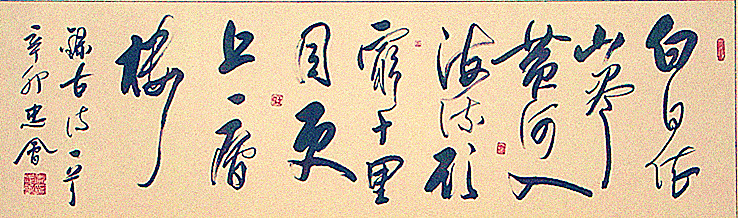 白日依
山尽
黄河入
海流欲
窮千里
目更
上一層
楼
録古诗一首
辛卯忠